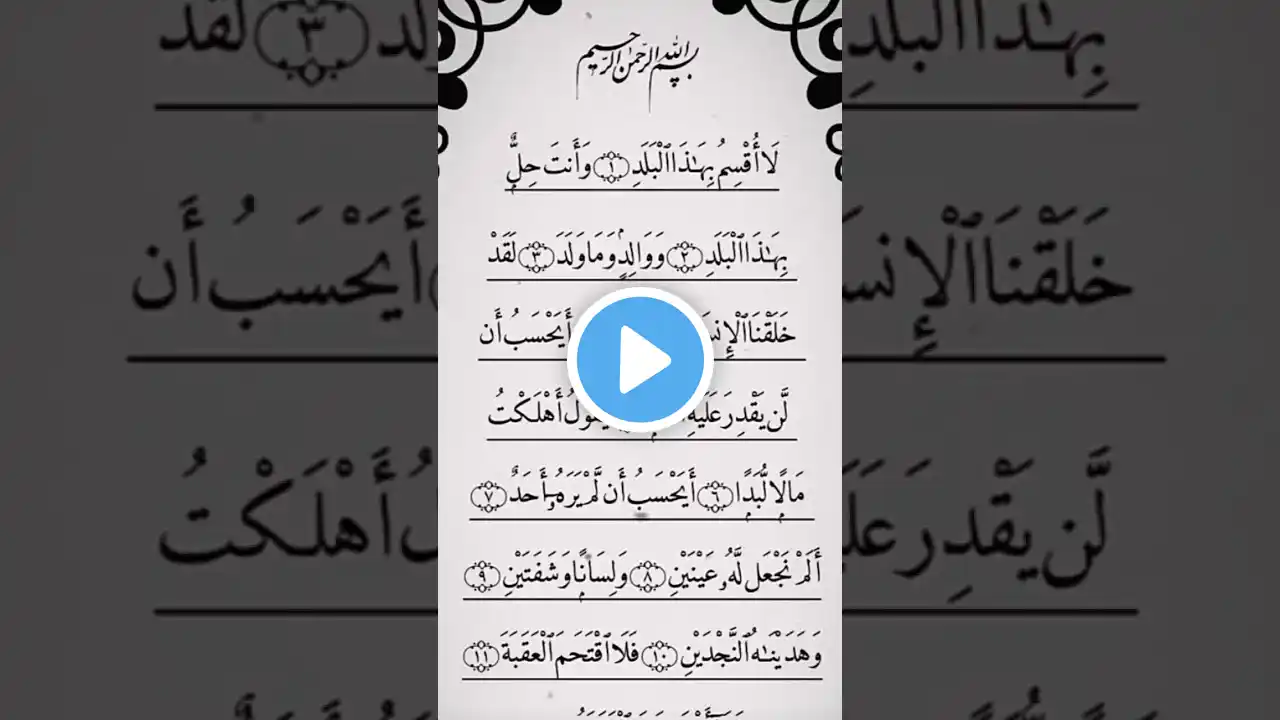 بسم الله الرحمن الرحيم
لَا أُقْسِمُ بِهَٰذَا ٱلْبَلَدِ ١ وَأَنتَ حِلٌّۢ
بِهَٰذَا ٱلْبَلَدِ ٢ وَوَالِدٍۢ وَمَا وَلَدَ ٣ لَقَدْ
خَلَقْنَا ٱلْإِنسَ أَيَحْسَبُ أَن
لَّن يَقْدِرَ عَلَيْهِ يَقُولُ أَهْلَكْتُ
مَالًۭا لُّبَدًا ٦ أَيَحْسَبُ أَن لَّمْ يَرَهُۥٓ أَحَدٌ ٧
أَلَمْ نَجْعَل لَّهُۥ عَيْنَيْنِ ٨ وَلِسَانًۭا وَشَفَتَيْنِ ٩
وَهَدَيْنَٰهُ ٱلنَّجْدَيْنِ ١٠ فَلَا ٱقْتَحَمَ ٱلْعَقَبَةَ ١١